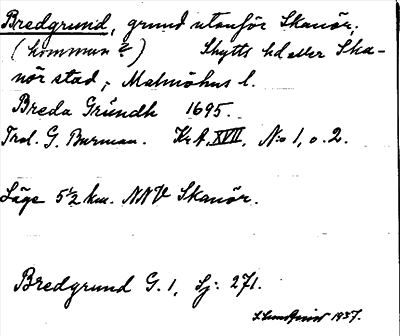 Bredgrund, grund utanför Skanör,
(kommun?) Skytts hd eller Ska-
nör stad, Malmöhus l.
Breda Grúndh 1695.
Trol. G. Burman. Kr A, XVII, No 1, o. 2.
Läge 5½ km. NNV Skanör.
Bredgrund G. 1, Sj: 271.
1937.